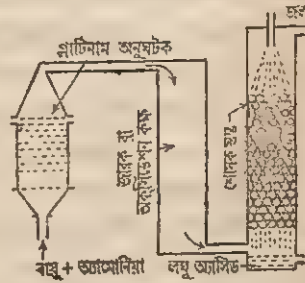 প্লাটিনাম অনুঘটক
জারক বা
অক্সিডেশন কক্ষ
শোষক স্তম্ভ
বায়ু + অ্যামোনিয়া
লঘু অ্যাসিড